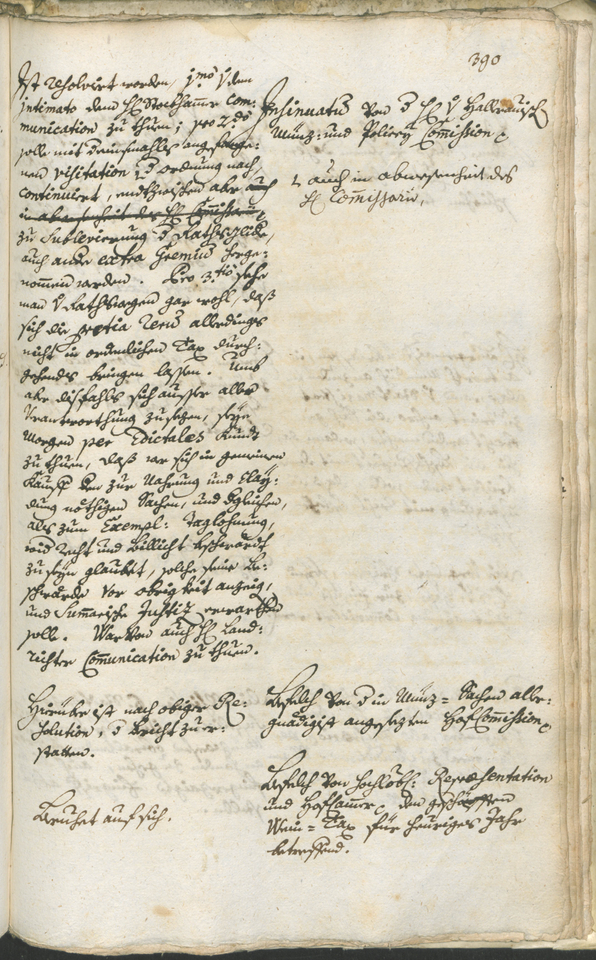 390
Ist resolvirt worden, jmo von dem
intimato dem H. Stockhamer Com-
munication zu thuen; pro 2do
solle mit demselben angefange-
nen visitation in ordnung nach,
continuirt, entzwischen aber auch
in abwesenheit des H. Commissarii,
zu Sublevierung d Rathsfreunde,
auch andere extra Gremium herge-
nommen werden. Pro 3tio sehe
man von Rathswegen gar wohl, daß
sich die pretia rerum allerdings
nicht in ordentlichen Tax durch-
gehendts bringen lassen. Umb
aber disfahls sich ausser aller
Verantworthung zu sezen, seye
Morgen per Edictales kundt
zu thuen, daß wer sich in gemeinen
Kauff der zur Nahrung und Klay-
dung nöthigen Sachen, und dgleichen,
als zum Exempl: Taglohnung,
wid Recht und Billicheit beschwerdt
zu seyn glaubet, solche seine Be-
schwerde vor obrigkeit anzeig,
und Summarische Justiz erwarthen
solle. Warvon auch H. Land-
richter Communication zu thuen.
Insinuatum von d H. von Hallerauisch
Münz- und Policey Commission
auch in abwesenheit des
H. Commissarii,
Hierüber ist nach obiger Re-
solution, d Bericht zu er-
statten.
Befelch von d in Münz-Sachen aller-
gnädigist angesezten Hof Commission
Beruhet auf sich.
Befelch von Hochlöbl: Repraesentation
und Hofkammer, den geschöpften
Wein-Tax für heuriges Jahr
betreffend.